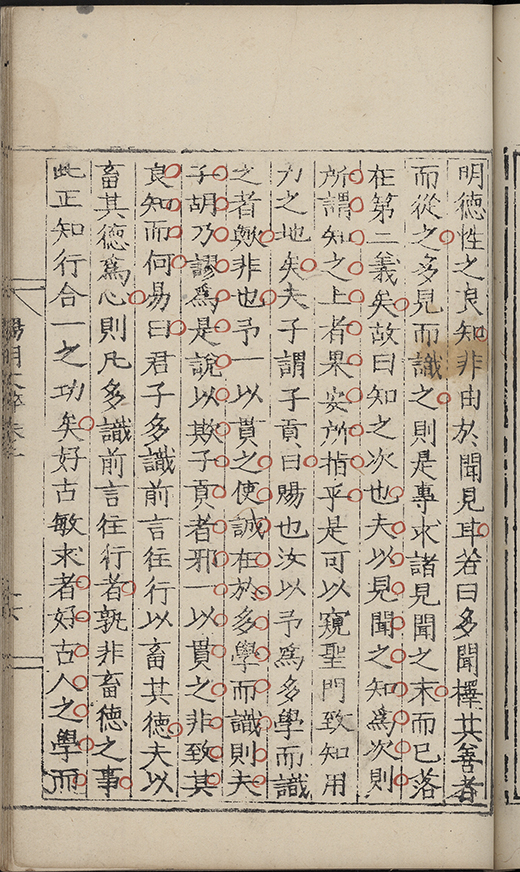 明德性之良知非由於聞見耳若曰多聞擇其善者
而從之多見而識之則是專求諸見聞之末而已落
在第二義矣故曰知之次也夫以見聞之知爲次則
所謂知之上者果安所指乎是可以窺聖門致知用
力之地矣夫子謂子貢曰賜也汝以予爲多學而識
之者歟非也予一以貫之使誠在於多學而識則夫
子胡乃謬爲是說以欺子貢者邪一以貫之非致其
良知而何易曰君子多識前言往行以畜其德夫以
畜其德爲心則凡多識前言往行者孰非畜德之事
此正知行合一之功矣好古敏求者好古人之學而
陽明文粹卷